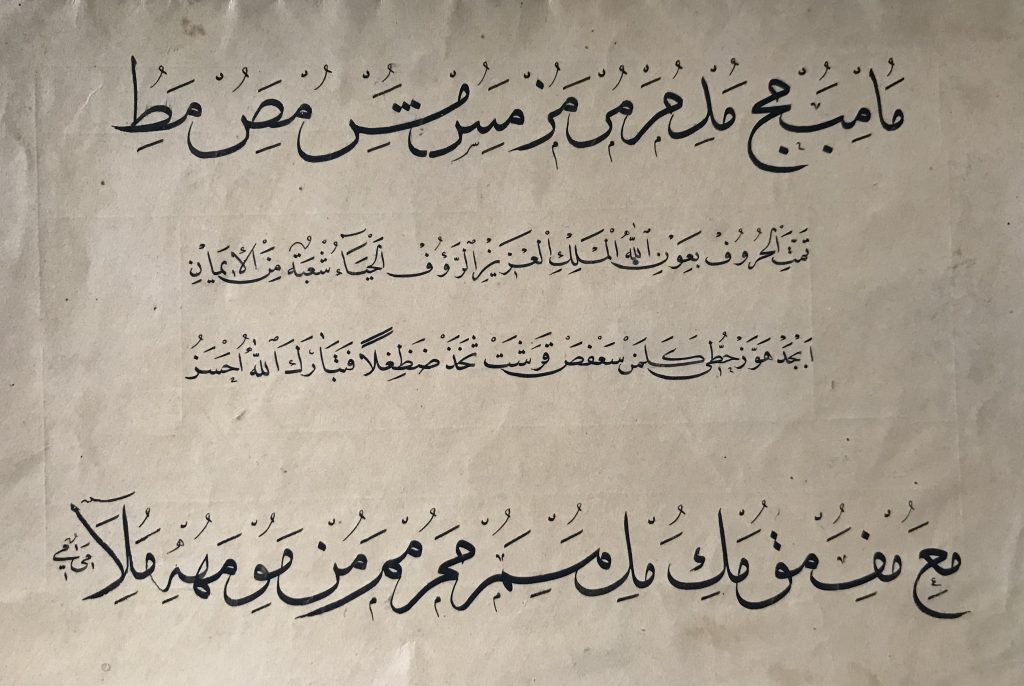 مُا مِبُ مج مُدِ مُرَ مُرِ مُزَ مِسُ مُشَِ مُصَِ مَطُ
تَمَّتِ الْحُرُوفُ بِعَوْنِ اللهِ الْمَلِكِ الْعَزِيزِ الرَّؤُفِ الْحَيَاءُ شُعْبَةٌ مِنَ الْاِيمَانِ
اَبْجَدْ هَوَّزْ حُطِّى كَلَمَنْ سَعْفَصْ قَرَشَتْ ثَخَذْ ضَظَِغْلًا فَتَبَارَكَ اللهُ اَحْسَنُ
مَعِ مُفَِ مُقِ مَكِ مُلِ مَُسِمَُ مَُحمَُ مَُممَُ مُنِ مَوُِ مَهُِ مُلَِا مَىُِ